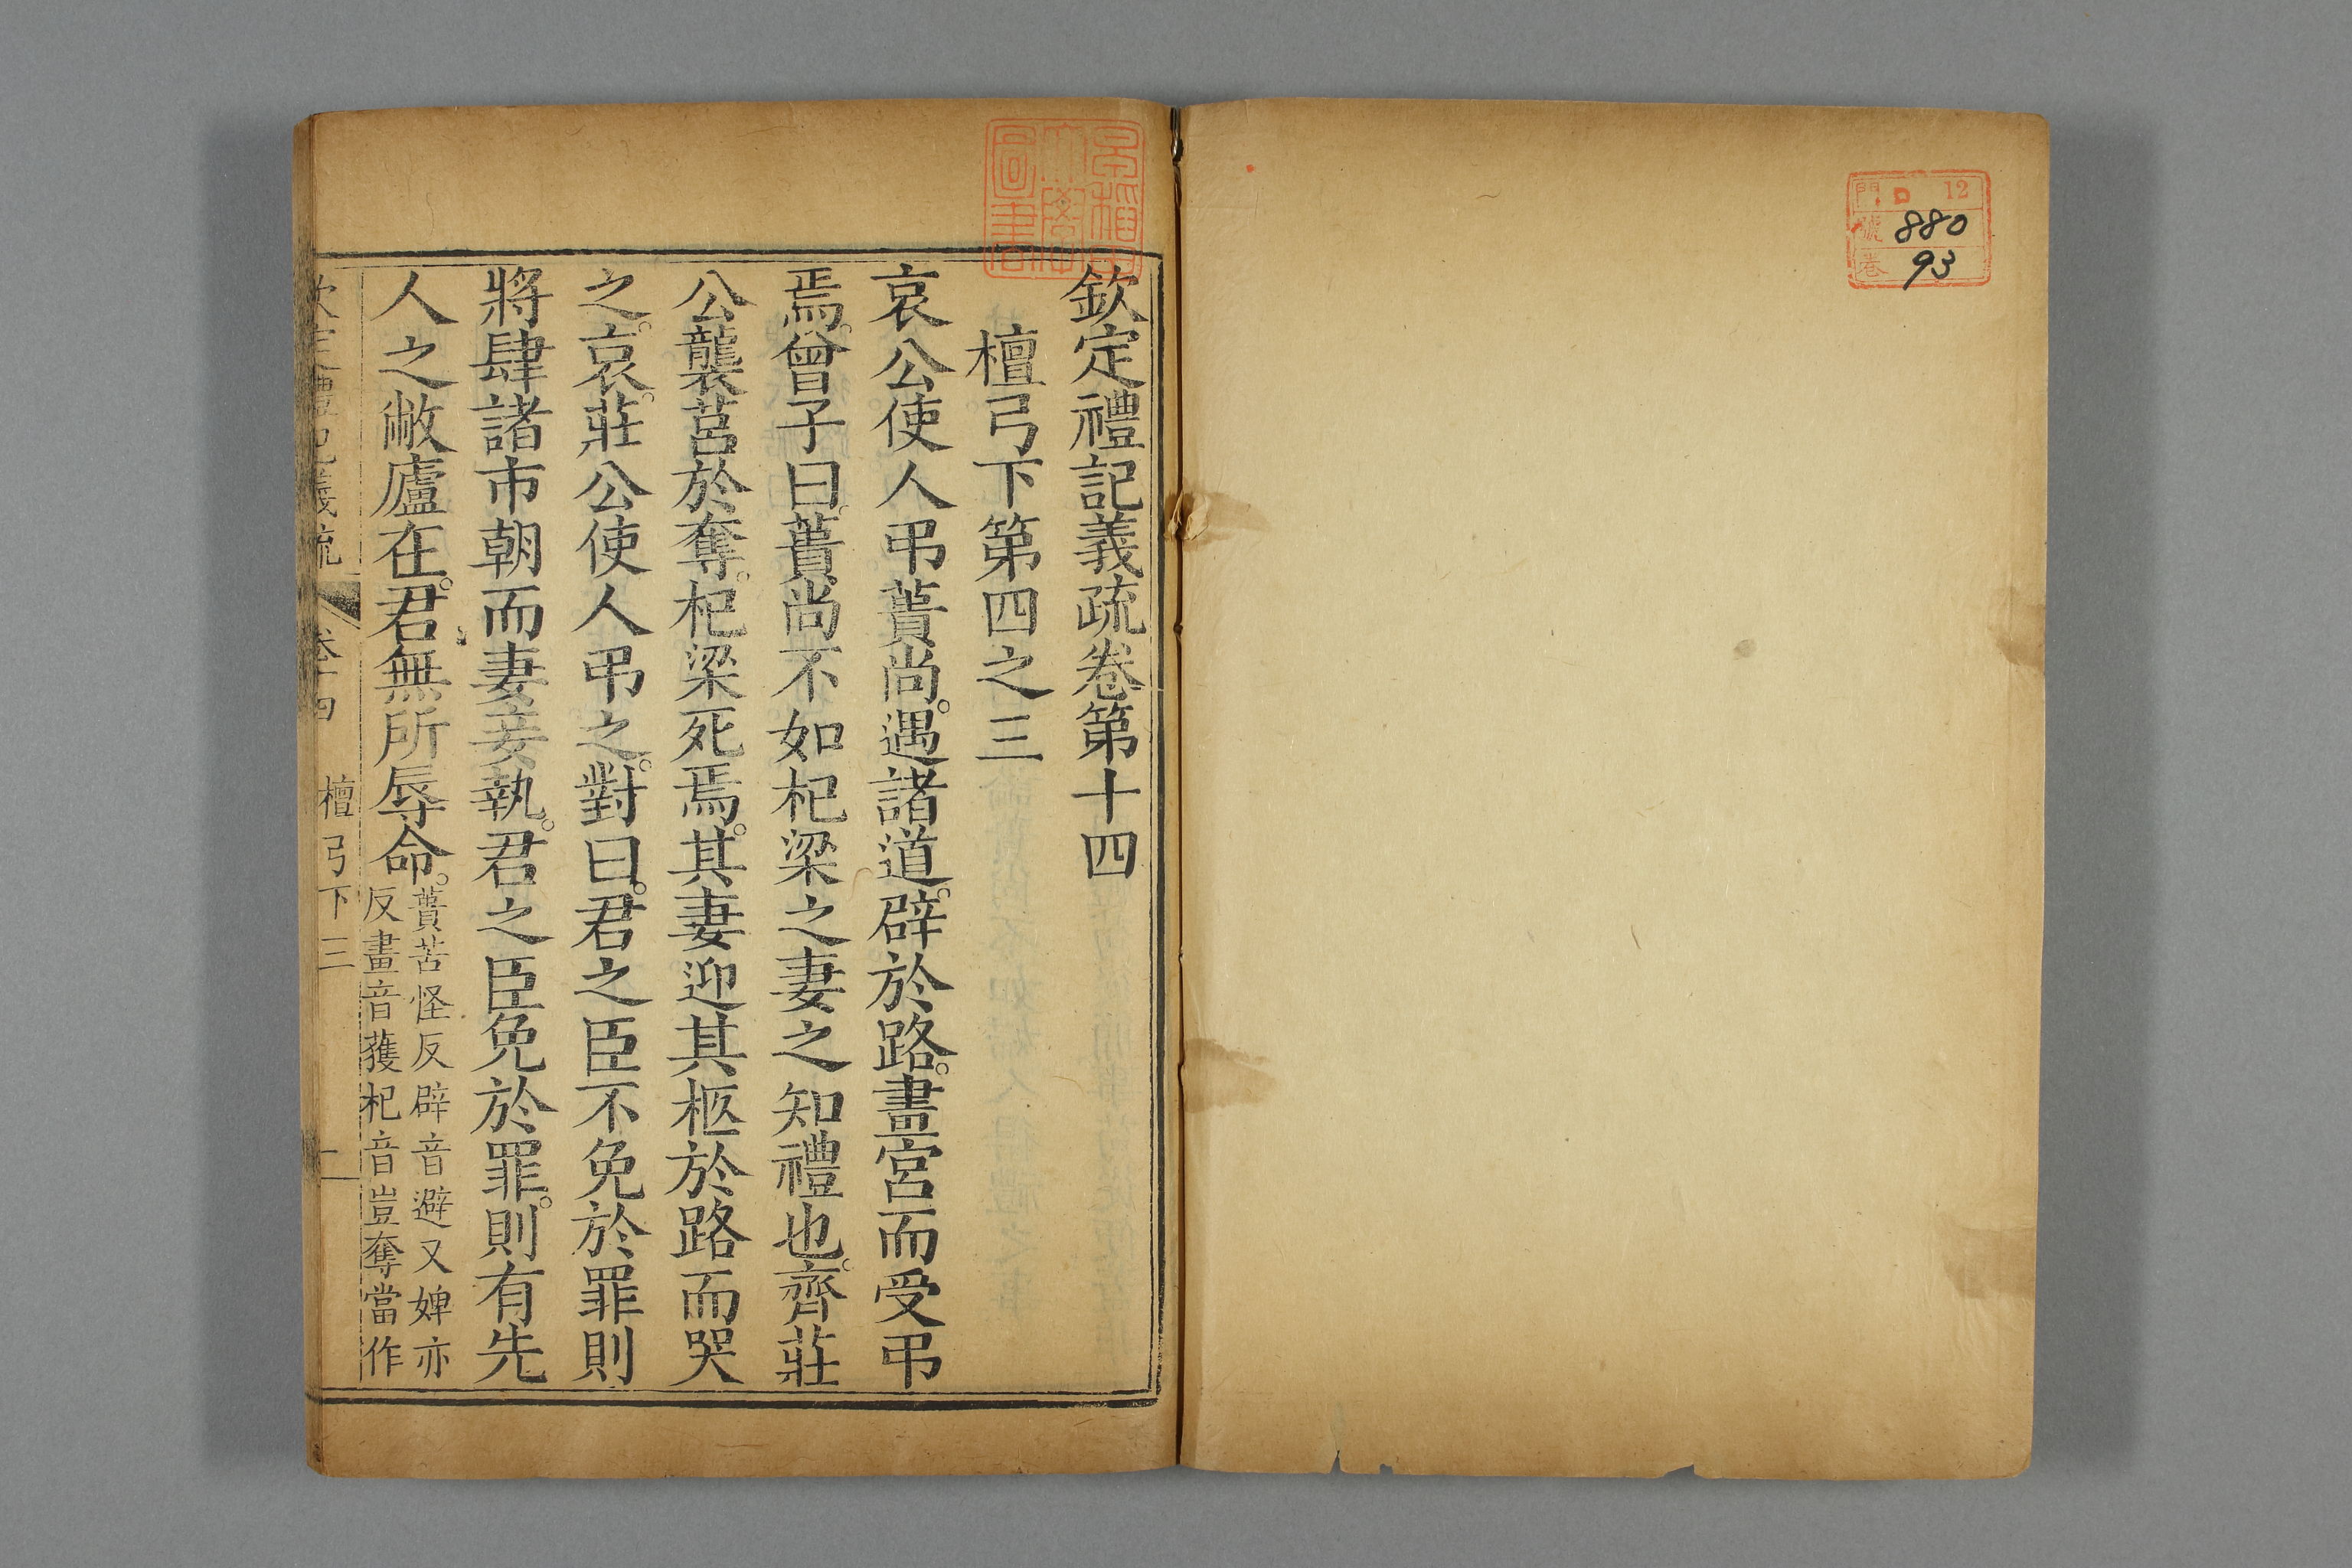 門 口 12
號 880
巷 93
早稲田大學圖書
欽定禮記義疏卷第十四
檀弓下第四之三
哀公使人弔蕢尚。遇諸道。辟於路。畫宮而受弔
焉。曾子曰。蕢尚不如杞梁之妻之知禮也。齊莊
公襲莒於奪。杞梁死焉。其妻迎其柩於路而哭
之。哀。莊公使人弔之。對曰。君之臣不免於罪則
將肆諸市朝而妻妾執。君之臣免於罪。則有先
人之敝廬在。君無所辱命。蕢苦怪反辟音避又婢亦
反畫音獲杞音豈奪當作
欽定禮記義疏 卷十四 檀弓下三 一